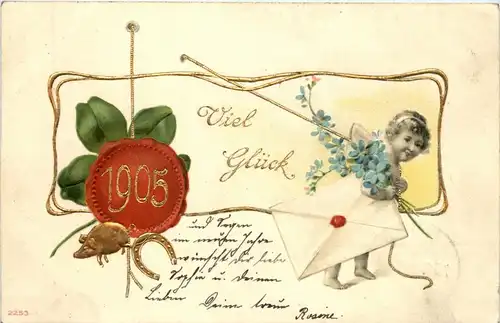 1905
Viel
Glück.
und Segen
im neuen Jahre
wünscht dir liebe
Sophie u. deinen
Lieben Deine treue
Rosine.
2253